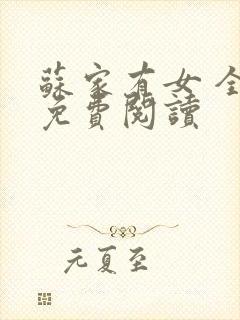 蘇家有女全
免費閱讀
元夏至